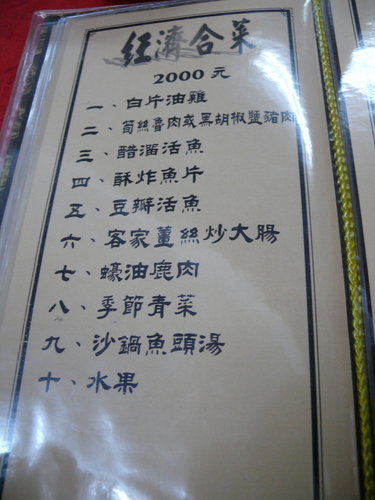 經濟合菜
2000元
一、白片油雞
二、筍絲魯肉或黑胡椒鹽豬肉
三、醋溜活魚
四、酥炸魚片
五、豆瓣活魚
六、客家薑絲炒大腸
七、蠔油鹿肉
八、季節青菜
九、沙鍋魚頭湯
十、水果